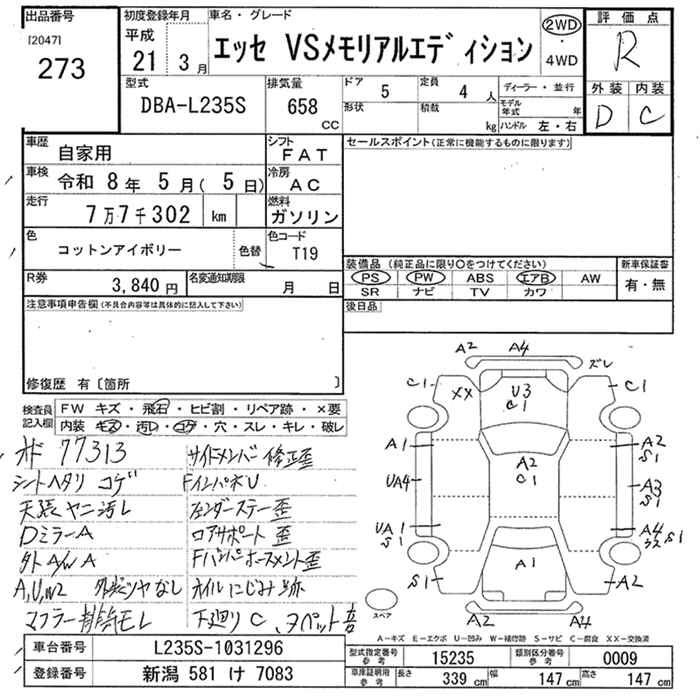 出品番号
[2047]
273
初度登録年月
平成
21 3月
車名・グレード
エッセ VSメモリアルエディション
2WD
・
4WD
評価点
R
外装 内装
D C
型式
DBA-L235S
排気量
658
CC
ドア
5
形状
定員
4 人
積載
kg
ディーラー・並行
モデル年式 年
ハンドル 左・右
車歴
自家用
シフト
FAT
車検
令和 8年 5月( 5日)
冷房
AC
走行
7万7千302 km
燃料
ガソリン
色
コットンアイボリー
色替
色コード
T19
R券
3,840円
名変通知期限
月 日
セールスポイント(正常に機能するものに限ります)
装備品 (純正品に限り○をつけてください)
PS PW ABS エアB AW
SR ナビ TV カワ
新車保証書
有・無
後日品
注意事項申告欄(不具合内容等は具体的に記入して下さい)
修復歴 有〔箇所 〕
検査員記入欄
FW キズ・飛石・ヒビ割・リペア跡・×要
内装 キズ・汚レ・コゲ・穴・スレ・キレ・破レ
77313
シートヘタリ コゲ
天張ヤニ汚レ
DミラーA
外A/W A
A,U,W2 外装ツヤなし
マフラー排気モレ
サイドメンバー修正歪
FインパネU
フェンダーステー歪
ロアサポート歪
Fバンパホースメント歪
オイルにじみ跡
下廻りC、
A2 A4
ズレ
C1 XX U3 C1 C1
A1 A2 C1 A2 S1
UA4 A3 S1
UA1 S1 A4 S1
S1 A1 A2
A2 A4
スペア
A-キズ E-エクボ U-凹み W-補修跡 S-サビ C-腐食 XX-交換済
車台番号
L235S-1031296
登録番号
新潟 581 け 7083
型式指定番号
参考
15235
類別区分番号
参考
0009
車庫証明用
参考
長さ 339 cm 幅 147 cm 高さ 147 cm